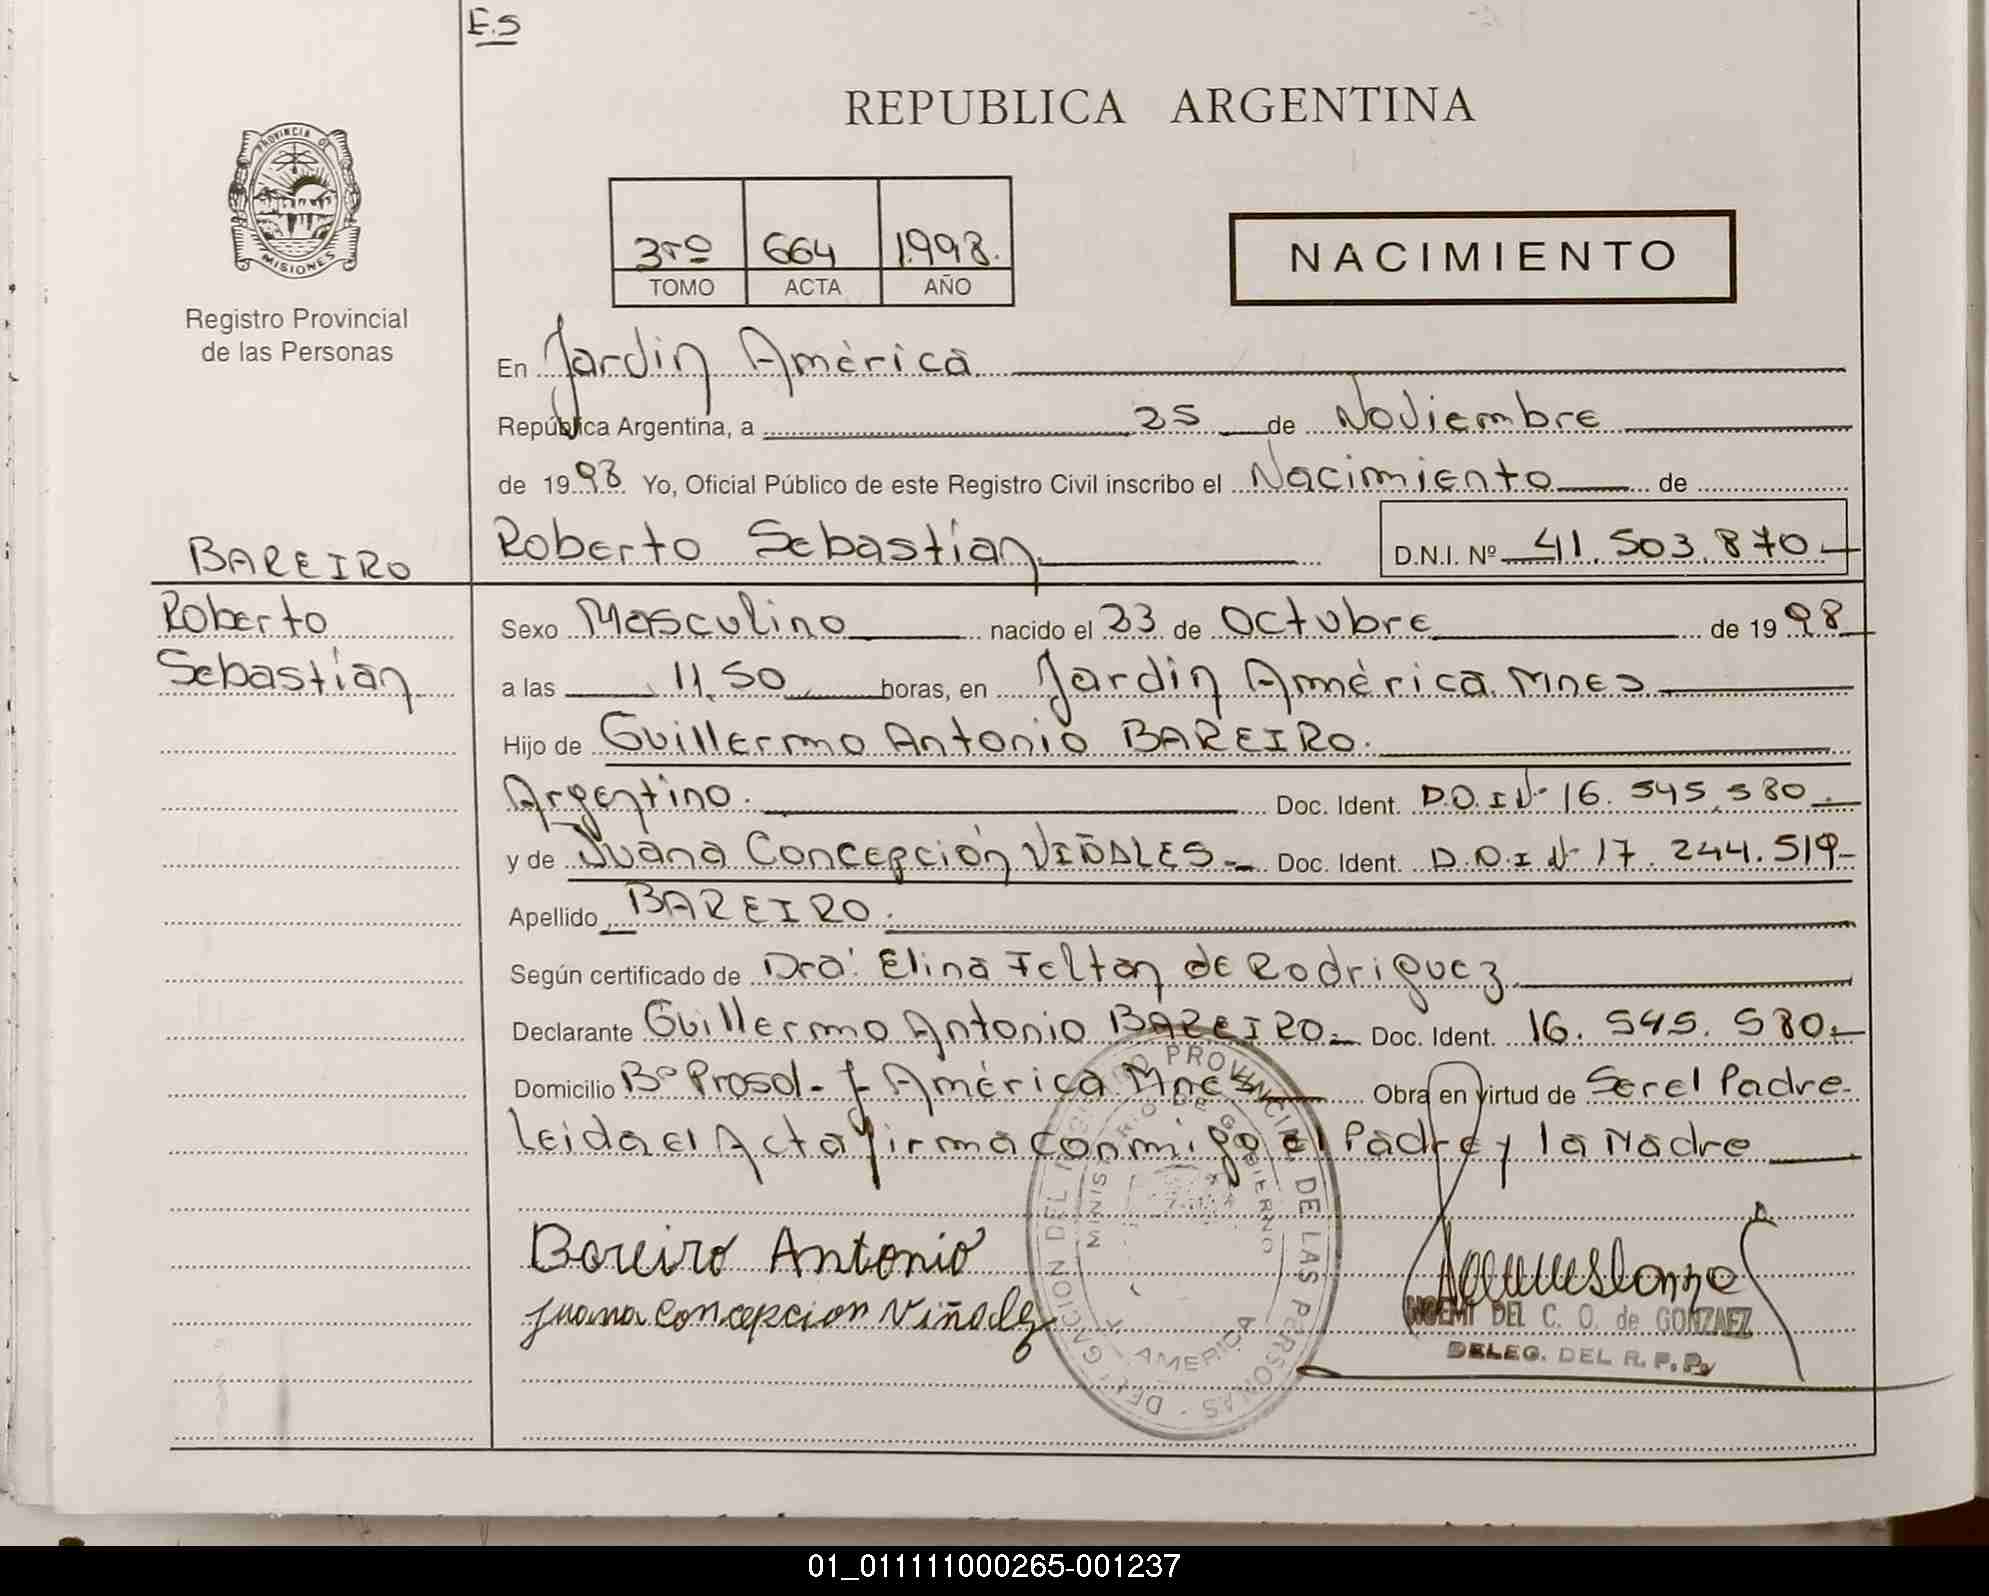 E.S
REPUBLICA ARGENTINA
PROVINCIA DE
MISIONES
Registro Provincial
de las Personas
3ro 664 1.998.
TOMO ACTA AÑO
NACIMIENTO
En Jardin América
República Argentina, a 25 de Noviembre
de 1998 Yo, Oficial Público de este Registro Civil inscribo el Nacimiento de
BAREIRO
Roberto Sebastián D.N.I. Nº 41.503.870-
Roberto
Sebastián
Sexo Masculino nacido el 23 de Octubre de 1998
a las 11,50 horas, en Jardin América Mnes
Hijo de Guillermo Antonio BAREIRO.
Argentino. Doc. Ident. D.N.I Nº 16.545.580.
y de Juana Concepción VIÑALES.- Doc. Ident. D.N.I Nº 17.244.519-
Apellido BAREIRO.
Según certificado de Dra. Elina Feltan de Rodriguez
Declarante Guillermo Antonio BAREIRO.- Doc. Ident. 16.545.580.-
Domicilio Bº Prosol - J. América Mnes Obra en virtud de Ser el Padre-
Leida el Acta firma conmigo el Padre y la Madre
Bareiro Antonio
Juana Concepcion Viñales
DELEGACION DEL REGISTRO PROVINCIAL DE LAS PERSONAS
MINISTERIO DE GOBIERNO
J. AMERICA
NOEMI DEL C. O. de GONZAEZ
DELEG. DEL R.P.P.
01_011111000265-001237